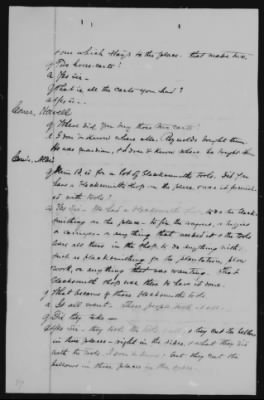 one which they to the place. that makes two.
Q Two horse carts?
A Yes sir—
Q That is all the carts you had?
A Yes sir.
Q Where did you buy those two carts?
A I don't know where Mr. Reynolds bought them.
He was guardian, & I don't know where he bought them
Q Item is for a lot of Blacksmith tools. Did you
have a blacksmith shop on the place & was it furnished
with tools?
A Yes Sir. We had a blacksmith shop, was to black-
smithing on the place— to fix the wagons, & buggies
& carriages & any thing that needed it & the tools
were all there in the shop to do any thing with,
such as blacksmithing for the plantation, plow
work, or anything that was wanting. The
blacksmith shop was there to have it done.
Q What became of those blacksmith tools
A It all went. These people took it all.
Q Did they take—
A Yes Sir— they took the tools, & they cut the bellows
in three places— right in the sides, & what they did
with the tools I don't know. but they cut the
bellows— in three places in the sides.